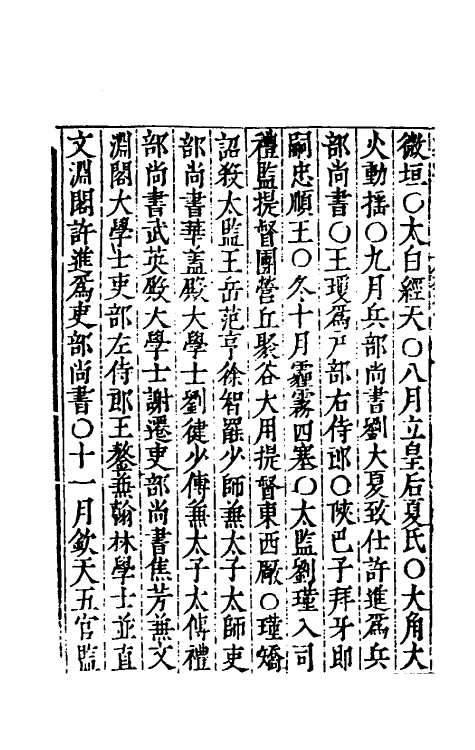 微垣○太白經天○八月立皇后夏氏○大角大
火動揺○九月兵部尚書劉大夏致仕許進爲兵
部尚書○王瓊爲户部右侍郎○陝巴子拜牙即
嗣忠順王○冬十月霾霧四塞○太監劉瑾入司
禮監提督團營丘聚谷大用提督東西厰○瑾矯
詔殺太監王岳范亨徐智罷少師兼太子太師吏
部尚書華蓋殿大學士劉健少傅兼太子太傅禮
部尚書武英殿大學士謝遷吏部尚書焦芳兼文
淵閣大學士吏部左侍郎王鏊兼翰林學士並直
文淵閣許進爲吏部尚書○十一月欽天五官監